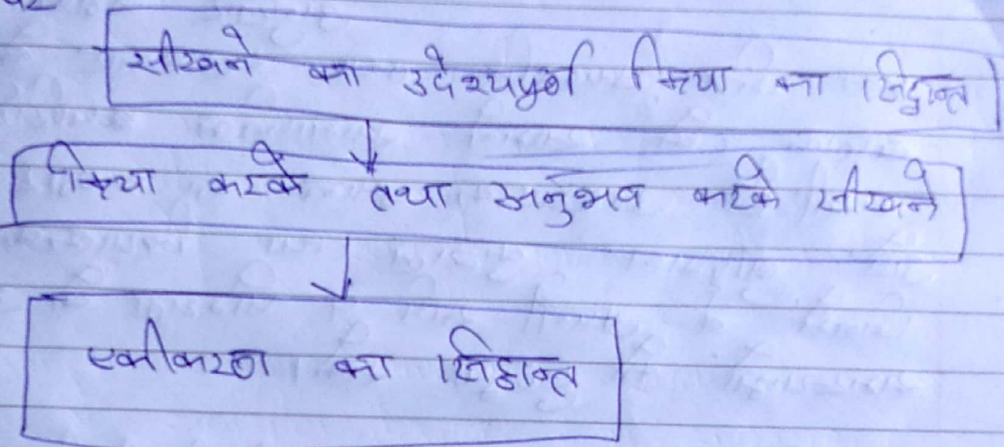 सीखने का उदेश्यपूर्ण क्रिया का सिद्धान्त
क्रिया करके तथा अनुभव करके सीखने
एकीकरण का सिद्धान्त